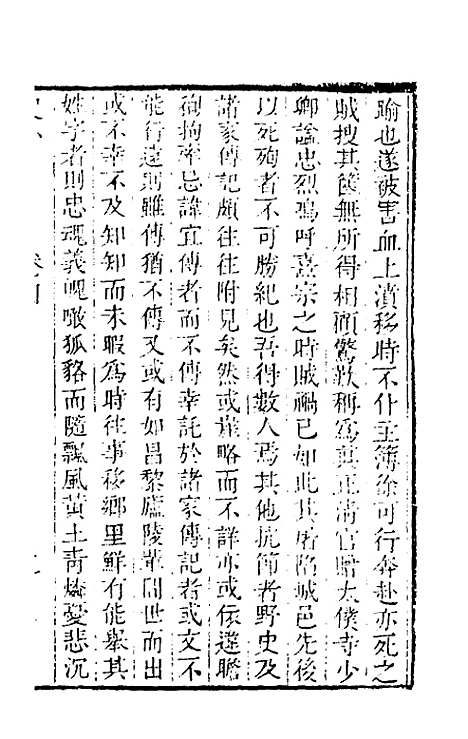 踰也遂被害血上漬移時不仆主簿徐可行奔赴亦死之
賊搜其篋無所得相顧驚歎稱爲真正清官賠太僕寺少
卿謚忠烈嗚呼熹宗之時賊禍已如此其屠陷城邑先後
以死殉者不可勝紀也吾得數人焉其他抗節者野史及
諸家傳記頗往往附見矣然或詳略而不詳亦或依違瞻
徇拘牽忌諱宜傳者而不傳幸託於諸家傳記者或文不
能行遠則雖傳猶不傳又或有如昌黎廬陵輩間世而出
或不幸不及知知而未暇爲時往事移鄉里鮮有能舉其
姓字者則忠魂義魄噉狐貉而隨飄風黃土青燐憂悲沉